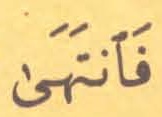 فَٱنتَهَىٰ